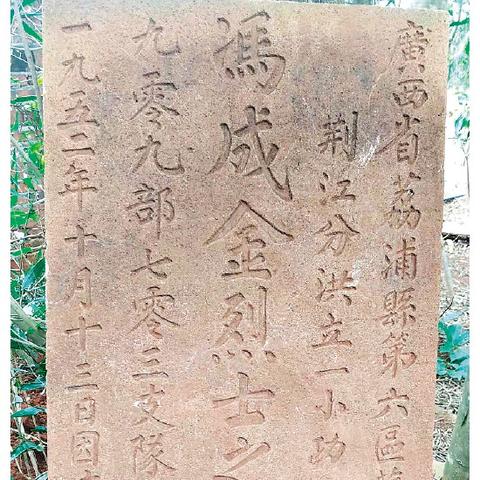 廣西省荔浦縣第六區
荆江分洪立一小功
馮成金烈士之
九零九部七零三支隊
一九五二年十月十三日因